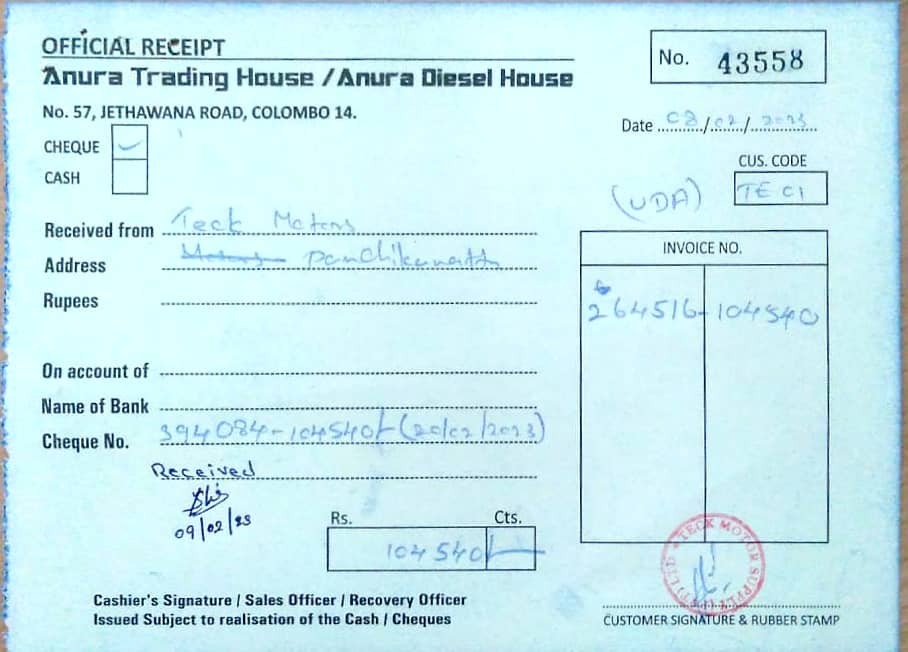 OFFICIAL RECEIPT
Anura Trading House / Anura Diesel House
No. 57, JETHAWANA ROAD, COLOMBO 14.
No. 43558
Date 08/02/2023
CHEQUE
CASH
CUS. CODE
TE C1
(UDA)
Received from Teck Motors
Address
Rupees
INVOICE NO.
264516- 104540
On account of
Name of Bank
Cheque No. 394084-104540/-(20/02/2023)
Received
09/02/23
Rs. Cts.
104540/-
TECK MOTOR SUPPLY (PVT) LTD
Cashier's Signature / Sales Officer / Recovery Officer
Issued Subject to realisation of the Cash / Cheques
CUSTOMER SIGNATURE & RUBBER STAMP